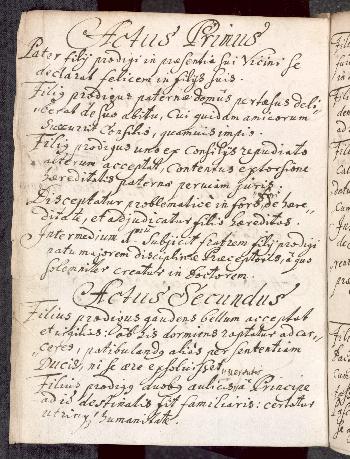 Actus Primus
Pater filij prodigi in præsentia sui Vicini se
declarat felicem in filijs suis.
Filig prodigus paternæ domûs pertæsus deli-
berat de suo abitu, Cui quidam amicorum
Succurit Consilijs, quamuis impijs.
Filig prodigus uno ex Consilijs repudiato
alterum acceptat, Contentus extorsione
hereditatis paternæ per viam juris.
Disceptatur problematicè in foro de here-
ditate, et adjudicatur filio hereditas.
Intermedium Subjicit fratrem filij prodigi
natu majorem disciplinæ Præceptoris, à quo
solemniter creatur in doctorem.
Actus Secundus
Filius prodigus gaudens bellum acceptat
et nihil: dormiens raptatur ad car-
ceres, patibulandg alias per sententiam
Ducis, ni se ære exsoluisset.
Filius prodigg duobg aulicis Principe
ad id destinatis fit familiaris: certatur
utrinq humanitate.